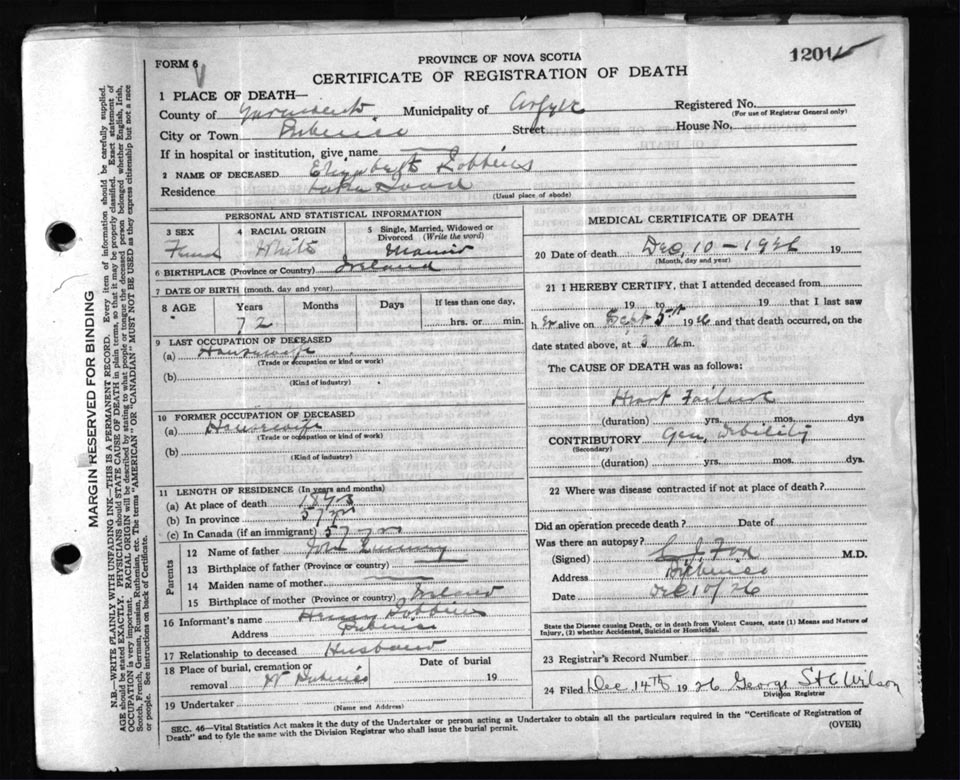 FORM 6
PROVINCE OF NOVA SCOTIA
1201
CERTIFICATE OF REGISTRATION OF DEATH
1 PLACE OF DEATH—
County of Yarmouth Municipality of Argyle Registered No.
(For use of Registrar General only)
City or Town Pubnico Street House No.
If in hospital or institution, give name
2 NAME OF DECEASED Elizabeth Robbins
Residence
(Usual place of abode)
PERSONAL AND STATISTICAL INFORMATION
3 SEX 4 RACIAL ORIGIN 5 Single, Married, Widowed or Divorced (Write the word)
White Married
6 BIRTHPLACE (Province or Country) Ireland
7 DATE OF BIRTH (month, day and year)
8 AGE Years Months Days If less than one day,
72 hrs. or min.
9 LAST OCCUPATION OF DECEASED
(a) Housewife
(Trade or occupation or kind or work)
(b)
(Kind of industry)
10 FORMER OCCUPATION OF DECEASED
(a) Housewife
(Trade or occupation or kind of work)
(b)
(Kind of industry)
11 LENGTH OF RESIDENCE (In years and months)
(a) At place of death
(b) In province 57 yrs
(c) In Canada (if an immigrant) 57 yrs
Parents
12 Name of father
13 Birthplace of father (Province or country)
14 Maiden name of mother
15 Birthplace of mother (Province or country) Ireland
16 Informant's name Henry Robbins
Address Pubnico
17 Relationship to deceased Husband
18 Place of burial, cremation or Date of burial
removal W Pubnico 19
19 Undertaker
(Name and Address)
MEDICAL CERTIFICATE OF DEATH
20 Date of death Dec, 10 – 1926 19
(Month, day and year)
21 I HEREBY CERTIFY, that I attended deceased from
19 to 19 that I last saw
h er alive on Sept 5th 1926 and that death occurred, on the
date stated above, at a m.
The CAUSE OF DEATH was as follows:
Heart Failure
(duration) yrs. mos. dys
CONTRIBUTORY Gen, Debility
(Secondary)
(duration) yrs. mos. dys.
22 Where was disease contracted if not at place of death?
Did an operation precede death? Date of
Was there an autopsy?
(Signed) Fox M.D.
Address Pubnico
Date Dec 10/26
State the Disease causing Death, or in death from Violent Causes, state (1) Means and Nature of
Injury, (2) whether Accidental, Suicidal or Homicidal.
23 Registrar's Record Number
24 Filed Dec 14th 1926 George St C Wilson
Division Registrar
SEC. 46—Vital Statistics Act makes it the duty of the Undertaker or person acting as Undertaker to obtain all the particulars required in the "Certificate of Registration of
Death" and to fyle the same with the Division Registrar who shall issue the burial permit. (OVER)
MARGIN RESERVED FOR BINDING
N.B.—WRITE PLAINLY WITH UNFADING INK—THIS IS A PERMANENT RECORD. Every item of information should be carefully supplied.
AGE should be stated EXACTLY. PHYSICIANS should STATE CAUSE OF DEATH in plain terms, so that it may be properly classified. Exact statement of
OCCUPATION is very important. RACIAL ORIGIN will be described by stating to what people or tongue the deceased person belonged whether English, Irish,
Scotch, French, German, Russian, Ruthenian, etc. The terms "AMERICAN" OR "CANADIAN" MUST NOT BE USED as they express citizenship but not a race
or people. See instructions on back of Certificate.